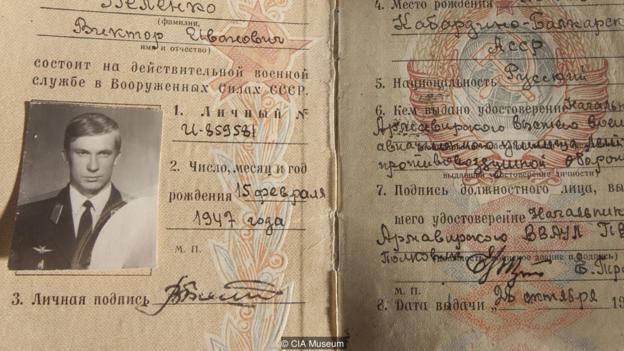 Беленко
(фамилия,
Виктор Иванович
имя и отчество)
состоит на действительной военной
службе в Вооруженных Силах СССР.
1. Личный №
И-859581
2. Число, месяц и год
рождения 15 февраля
1947 года
м. п.
3. Личная подпись
4. Место рождения
Кабардино-Балкарск
АССР
5. Национальность Русский
6. Кем выдано удостоверение Начальн
Армавирского высшего воен
авиа училища
противовоздушной оборон
выдавшего удостоверение личности
7. Подпись должностного лица, вы
шего удостоверение Начальник
Армавирского ВВАУЛ ПВ
Полковник
м. п.
8. Дата выдачи „26 октября 19
© CIA Museum